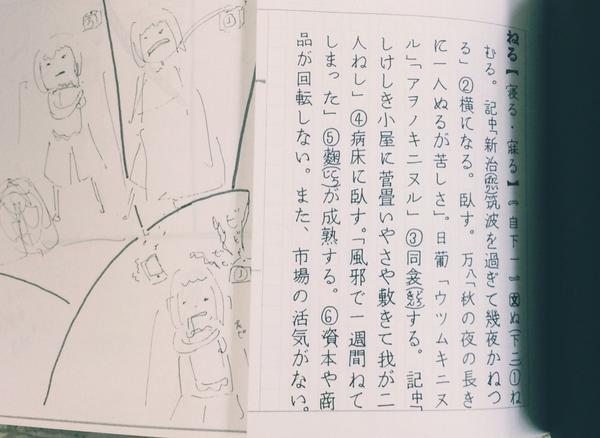 ねる【寝る・寐る】《自下一》図ぬ(下二)①ね
むる。記中「新治(にひばり)筑波を過ぎて幾夜かねつ
る」②横になる。臥す。万八「秋の夜の長き
に一人ぬるが苦しさ」。日葡「ウツムキニヌ
ル」「アヲノキニヌル」③同衾(どうきん)する。記中「
しけしき小屋に菅畳いやさや敷きて我が二
人ねし」④病床に臥す。「風邪で一週間ねて
しまった」⑤麹(こうじ)が成熟する。⑥資本や商
品が回転しない。また、市場の活気がない。